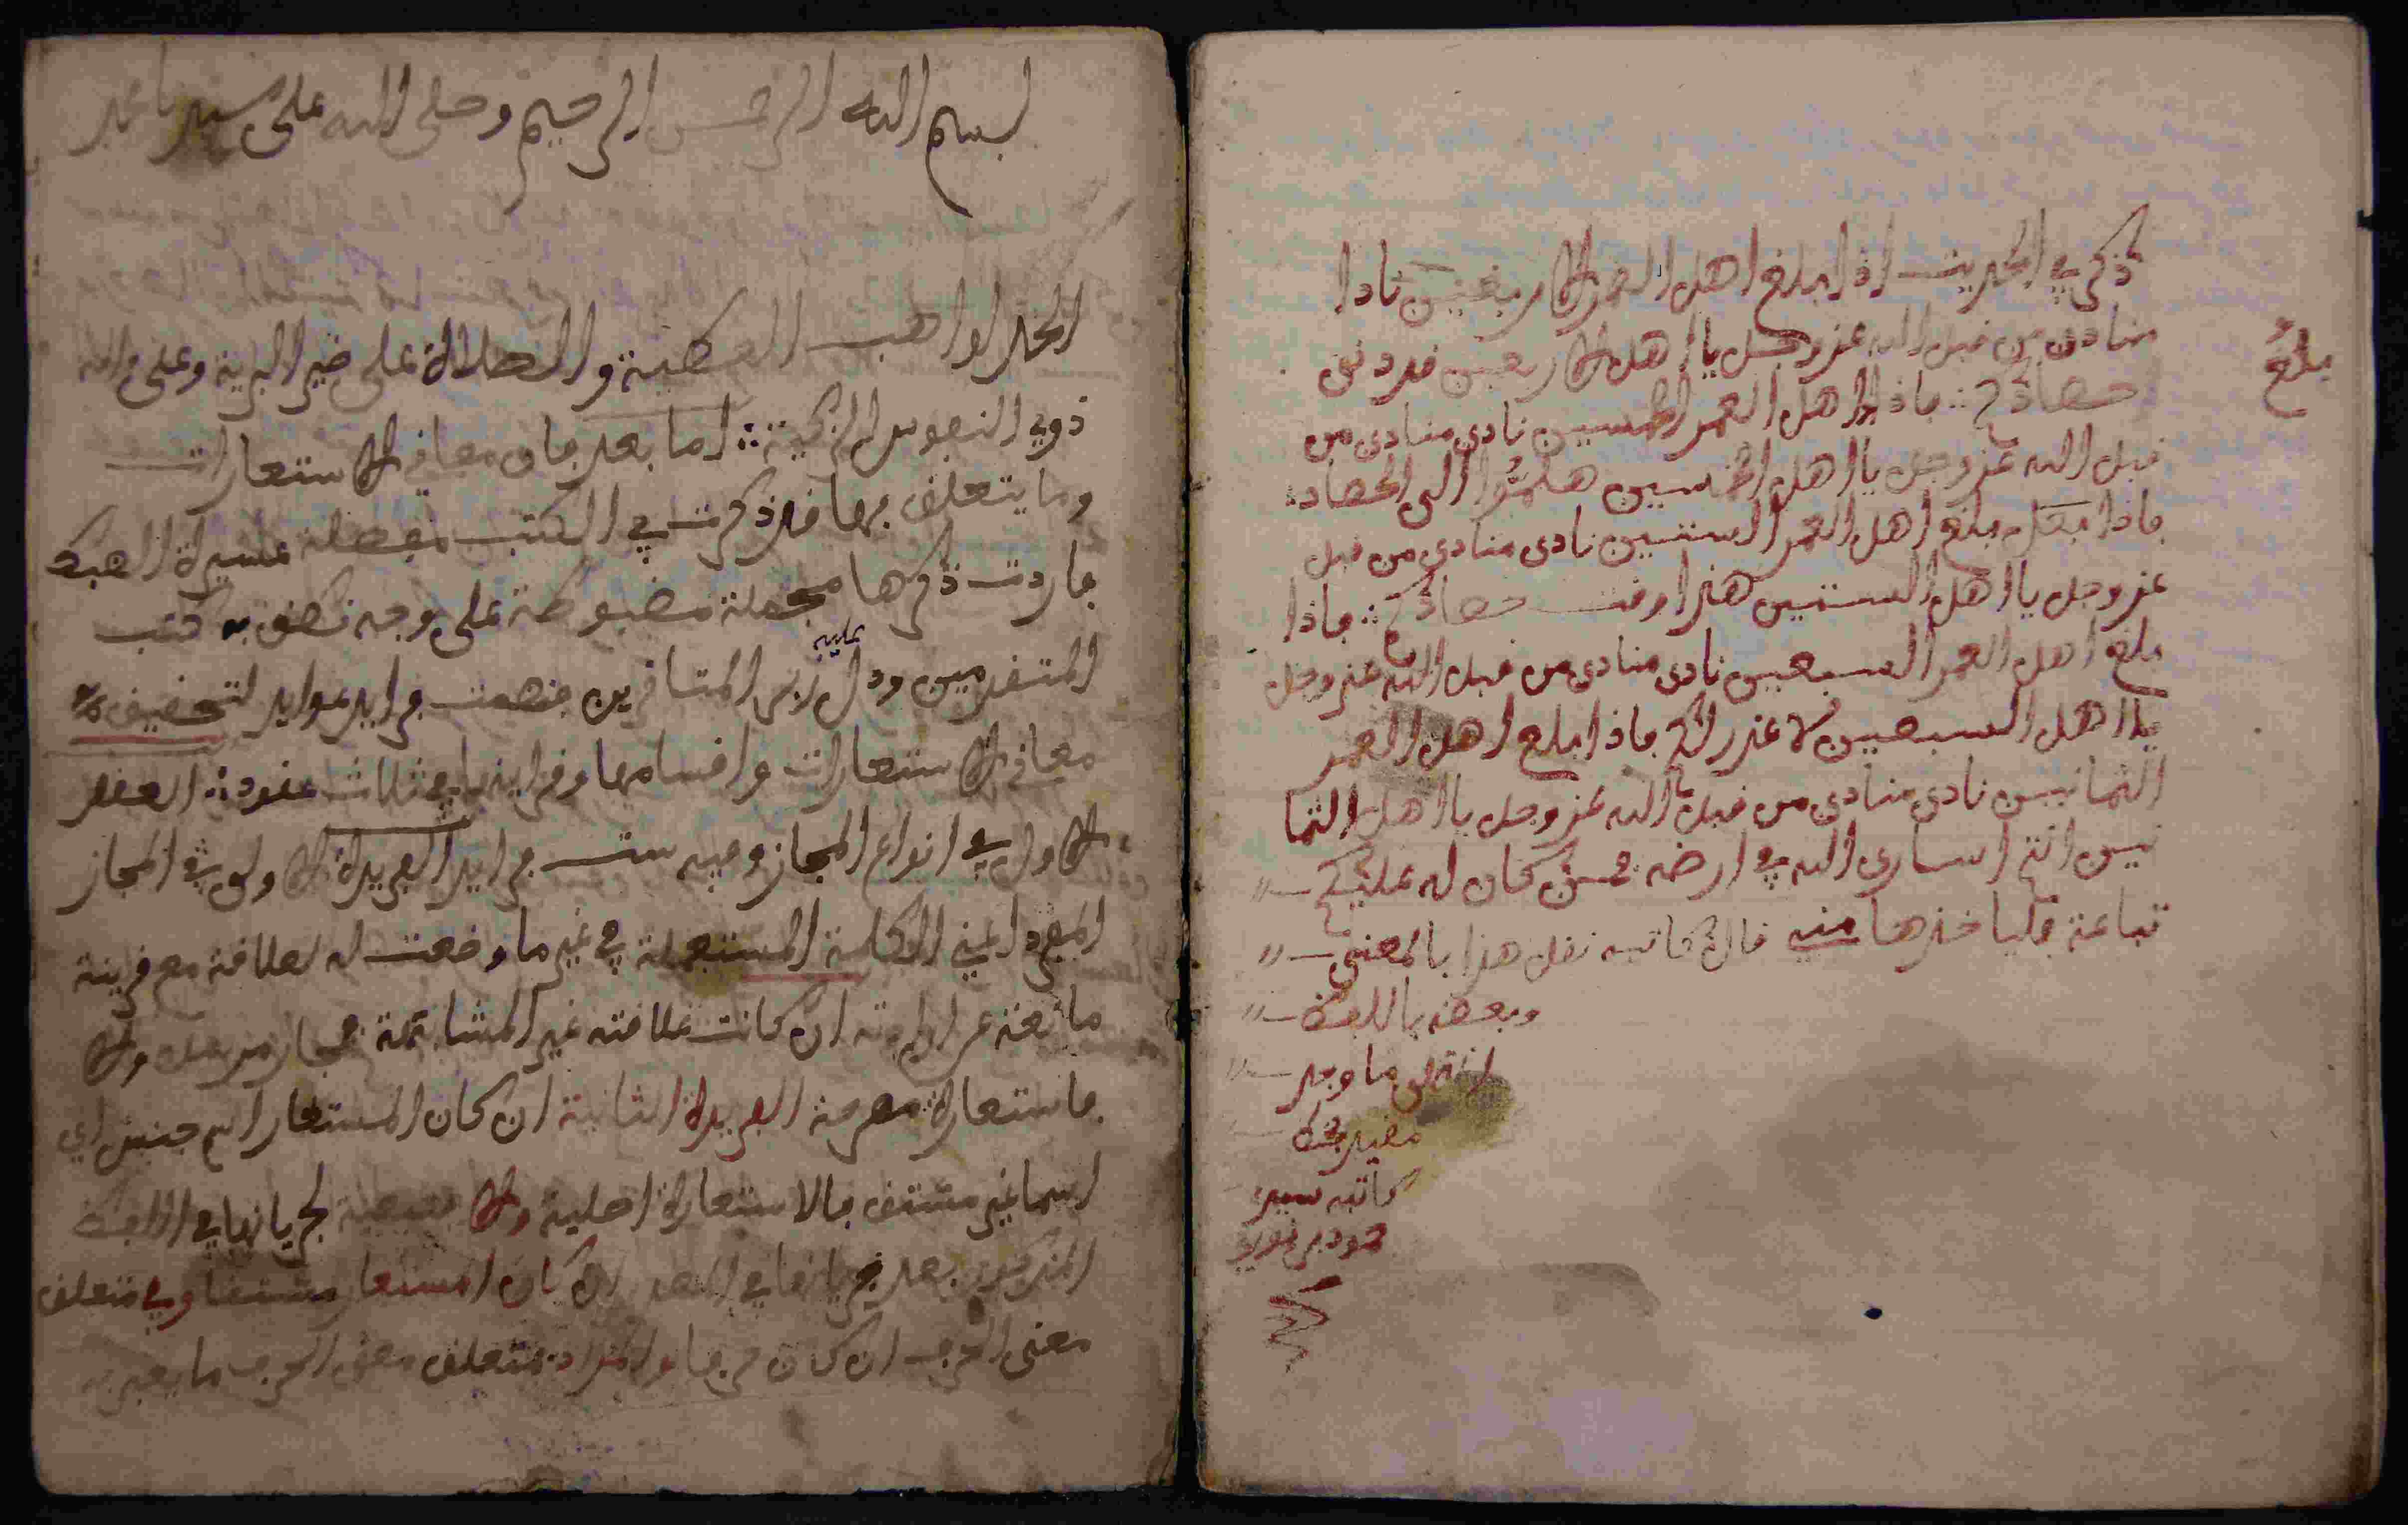 ذكر في الحديث اذا بلغ اهل العمر الاربعين نادا
منادى من قبل الله عز وجل يا اهل الاربعين قد دنى
حصادكم فاذا اهل العمر الخمسين نادى منادى من
قبل الله عز وجل يا اهل الخمسين هلمُّوا الى الحصاد
فاذا بلغ اهل العمر الستين نادى منادى من قبل
عز وجل يا اهل الستين هذا وقت حصادكم فاذا
بلغ اهل العمر السبعين نادى منادى من قبل الله عز وجل
يا اهل السبعين لا عذر لكم فاذا بلغ اهل العمر
الثمانين نادى منادى من قبل الله عز وجل يا اهل الثما
نين انتم اسارى الله في ارضه فمن كان له عليكم
تباعة فلياخذها منه قال كاتبه نقل هذا بالمعنى
وبعضه باللفظ
انتهى ما وجد
مقيد بخط
كاتبه سيد
بلغ
بسم الله الرحمن الرحيم وصلى الله على سيدنا محمد
الحمد لواهب العطية والصلاة على خير البرية وعلى واله
ذوي النفوس الزكية اما بعد فان معاني الاستعارات
وما يتعلق بها قد ذكرت في الكتب مفصلة عسيرة الضبط
فاردت ذكرها مجملة مضبوطة على وجه نطق به كتب
المتقدمين ودل عليه زبر المتاخرين فنظمت فرايد عوايد لتحقيق
معاني الاستعارات واقسامها وقراينها في ثلاث عقود العقد
الاول في انواع المجاز وفيه ست فرايد الفريدة الاولى في المجاز
المفرد اعني الكلمة المستعملة في غير ما وضعت له لعلاقة مع قرينة
مانعة عن ارادته ان كانت علاقته غير المشابهة فمجاز مرسل والا
فاستعارة مصرحة الفريدة الثانية ان كان المستعار اسم جنس اي
اسما غير مشتق فالاستعارة اصلية والا فتبعية لجريانها في اللفظ
المذكور بعد جريانها في المصدر ان كان المستعار مشتقا وفي متعلق
معنى الحرف ان كان حرفا والمراد بمتعلق معنى الحرف ما يعبر به